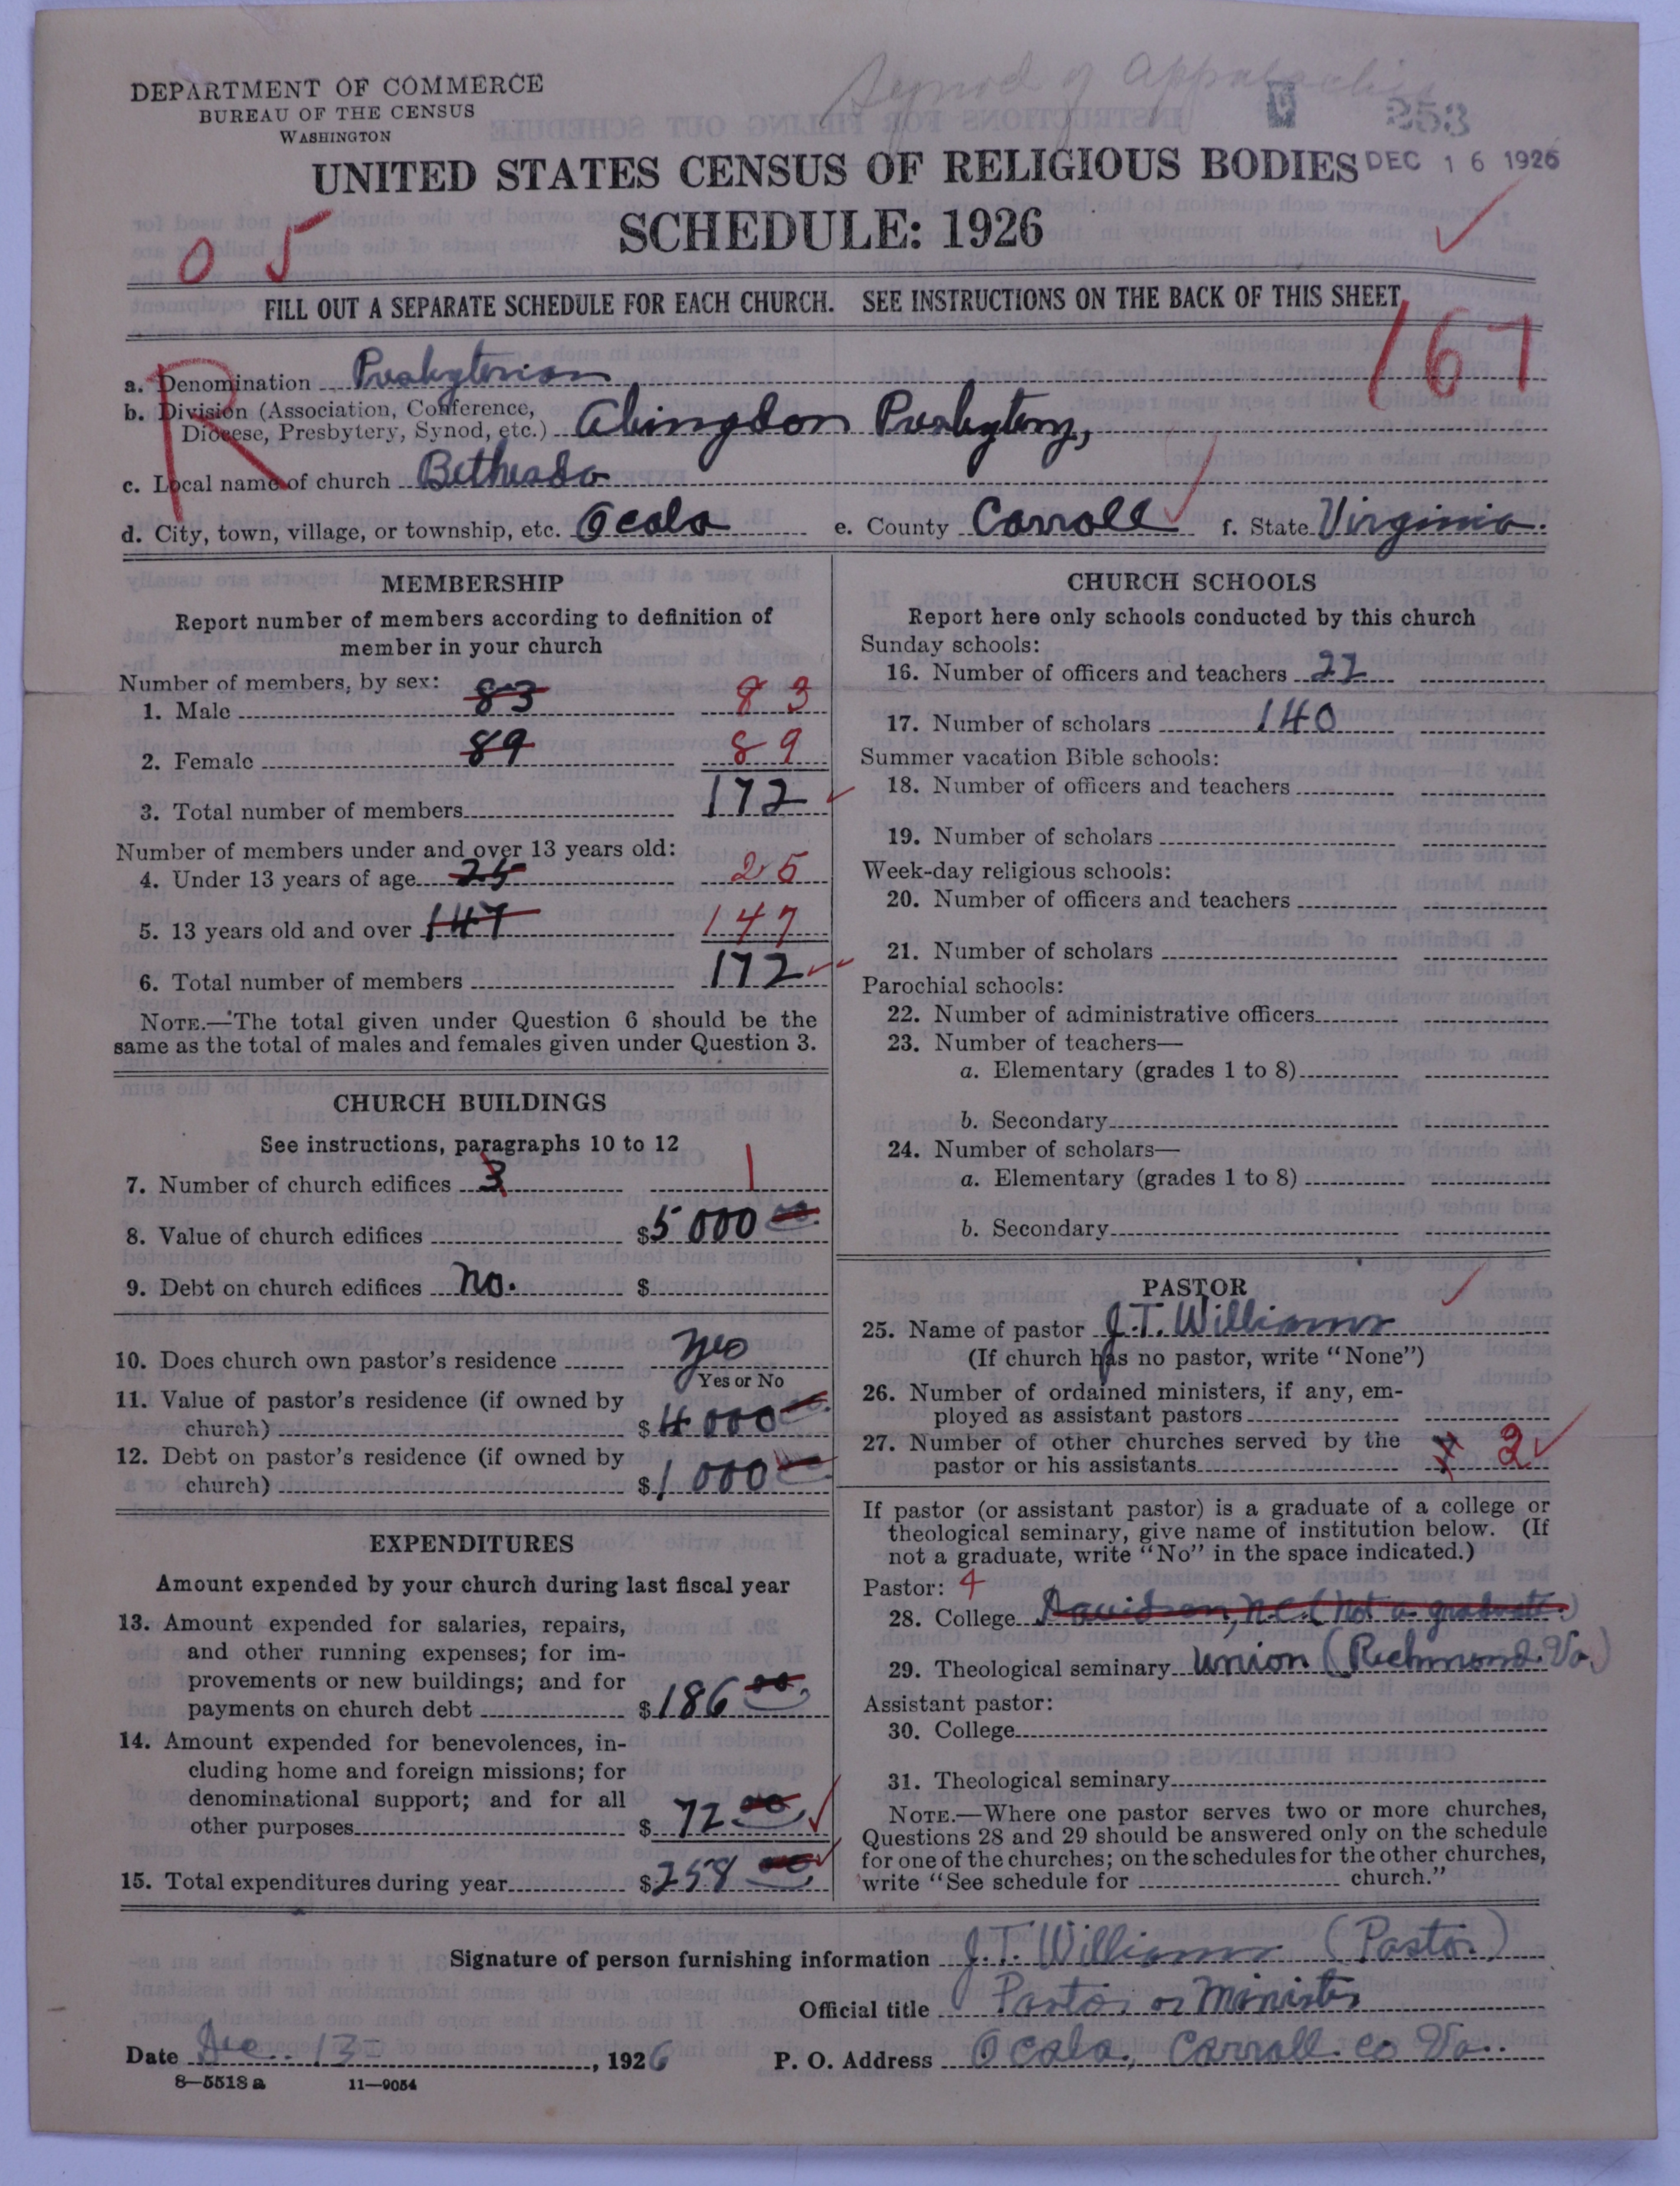 Synod of Appalachia
DEPARTMENT OF COMMERCE
BUREAU OF THE CENSUS
WASHINGTON
253
UNITED STATES CENSUS OF RELIGIOUS BODIES DEC 16 1926
SCHEDULE: 1926
0 5
FILL OUT A SEPARATE SCHEDULE FOR EACH CHURCH. SEE INSTRUCTIONS ON THE BACK OF THIS SHEET
167
R
a. Denomination Presbyterian
b. Division (Association, Conference,
Diocese, Presbytery, Synod, etc.) Abingdon Presbytery,
c. Local name of church Bethesda
d. City, town, village, or township, etc. Ocala e. County Carroll f. State Virginia.
MEMBERSHIP
Report number of members according to definition of
member in your church
Number of members, by sex:
1. Male 83 83
2. Female 89 89
3. Total number of members 172
Number of members under and over 13 years old:
4. Under 13 years of age 25 25
5. 13 years old and over 147 147
6. Total number of members 172
NOTE.—The total given under Question 6 should be the
same as the total of males and females given under Question 3.
CHURCH BUILDINGS
See instructions, paragraphs 10 to 12
7. Number of church edifices 3 1
8. Value of church edifices $5000 00
9. Debt on church edifices no. $
10. Does church own pastor's residence yes
Yes or No
11. Value of pastor's residence (if owned by
church) $4000 00
12. Debt on pastor's residence (if owned by
church) $1000 00
EXPENDITURES
Amount expended by your church during last fiscal year
13. Amount expended for salaries, repairs,
and other running expenses; for im-
provements or new buildings; and for
payments on church debt $186 00
14. Amount expended for benevolences, in-
cluding home and foreign missions; for
denominational support; and for all
other purposes $72 00
15. Total expenditures during year $258 00
CHURCH SCHOOLS
Report here only schools conducted by this church
Sunday schools:
16. Number of officers and teachers
17. Number of scholars 140
Summer vacation Bible schools:
18. Number of officers and teachers
19. Number of scholars
Week-day religious schools:
20. Number of officers and teachers
21. Number of scholars
Parochial schools:
22. Number of administrative officers
23. Number of teachers—
a. Elementary (grades 1 to 8)
b. Secondary
24. Number of scholars—
a. Elementary (grades 1 to 8)
b. Secondary
PASTOR
25. Name of pastor J.T. Williams
(If church has no pastor, write "None")
26. Number of ordained ministers, if any, em-
ployed as assistant pastors
27. Number of other churches served by the
pastor or his assistants 2
If pastor (or assistant pastor) is a graduate of a college or
theological seminary, give name of institution below. (If
not a graduate, write "No" in the space indicated.)
Pastor: 4
28. College Davidson, N.C. (not a graduate.)
29. Theological seminary Union (Richmond. Va.)
Assistant pastor:
30. College
31. Theological seminary
NOTE.—Where one pastor serves two or more churches,
Questions 28 and 29 should be answered only on the schedule
for one of the churches; on the schedules for the other churches,
write "See schedule for church."
Signature of person furnishing information J.T. Williams (Pastor)
Official title Pastor or Minister
Date Dec. 13 , 1926 P. O. Address Ocala, Carroll co Va.
8—5518 a 11—9054